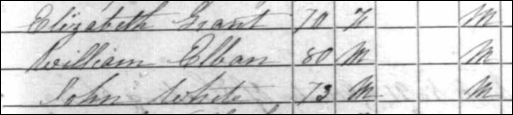 Elizabeth Grant 70 F M
William Elban 80 M M
John White 73 M M